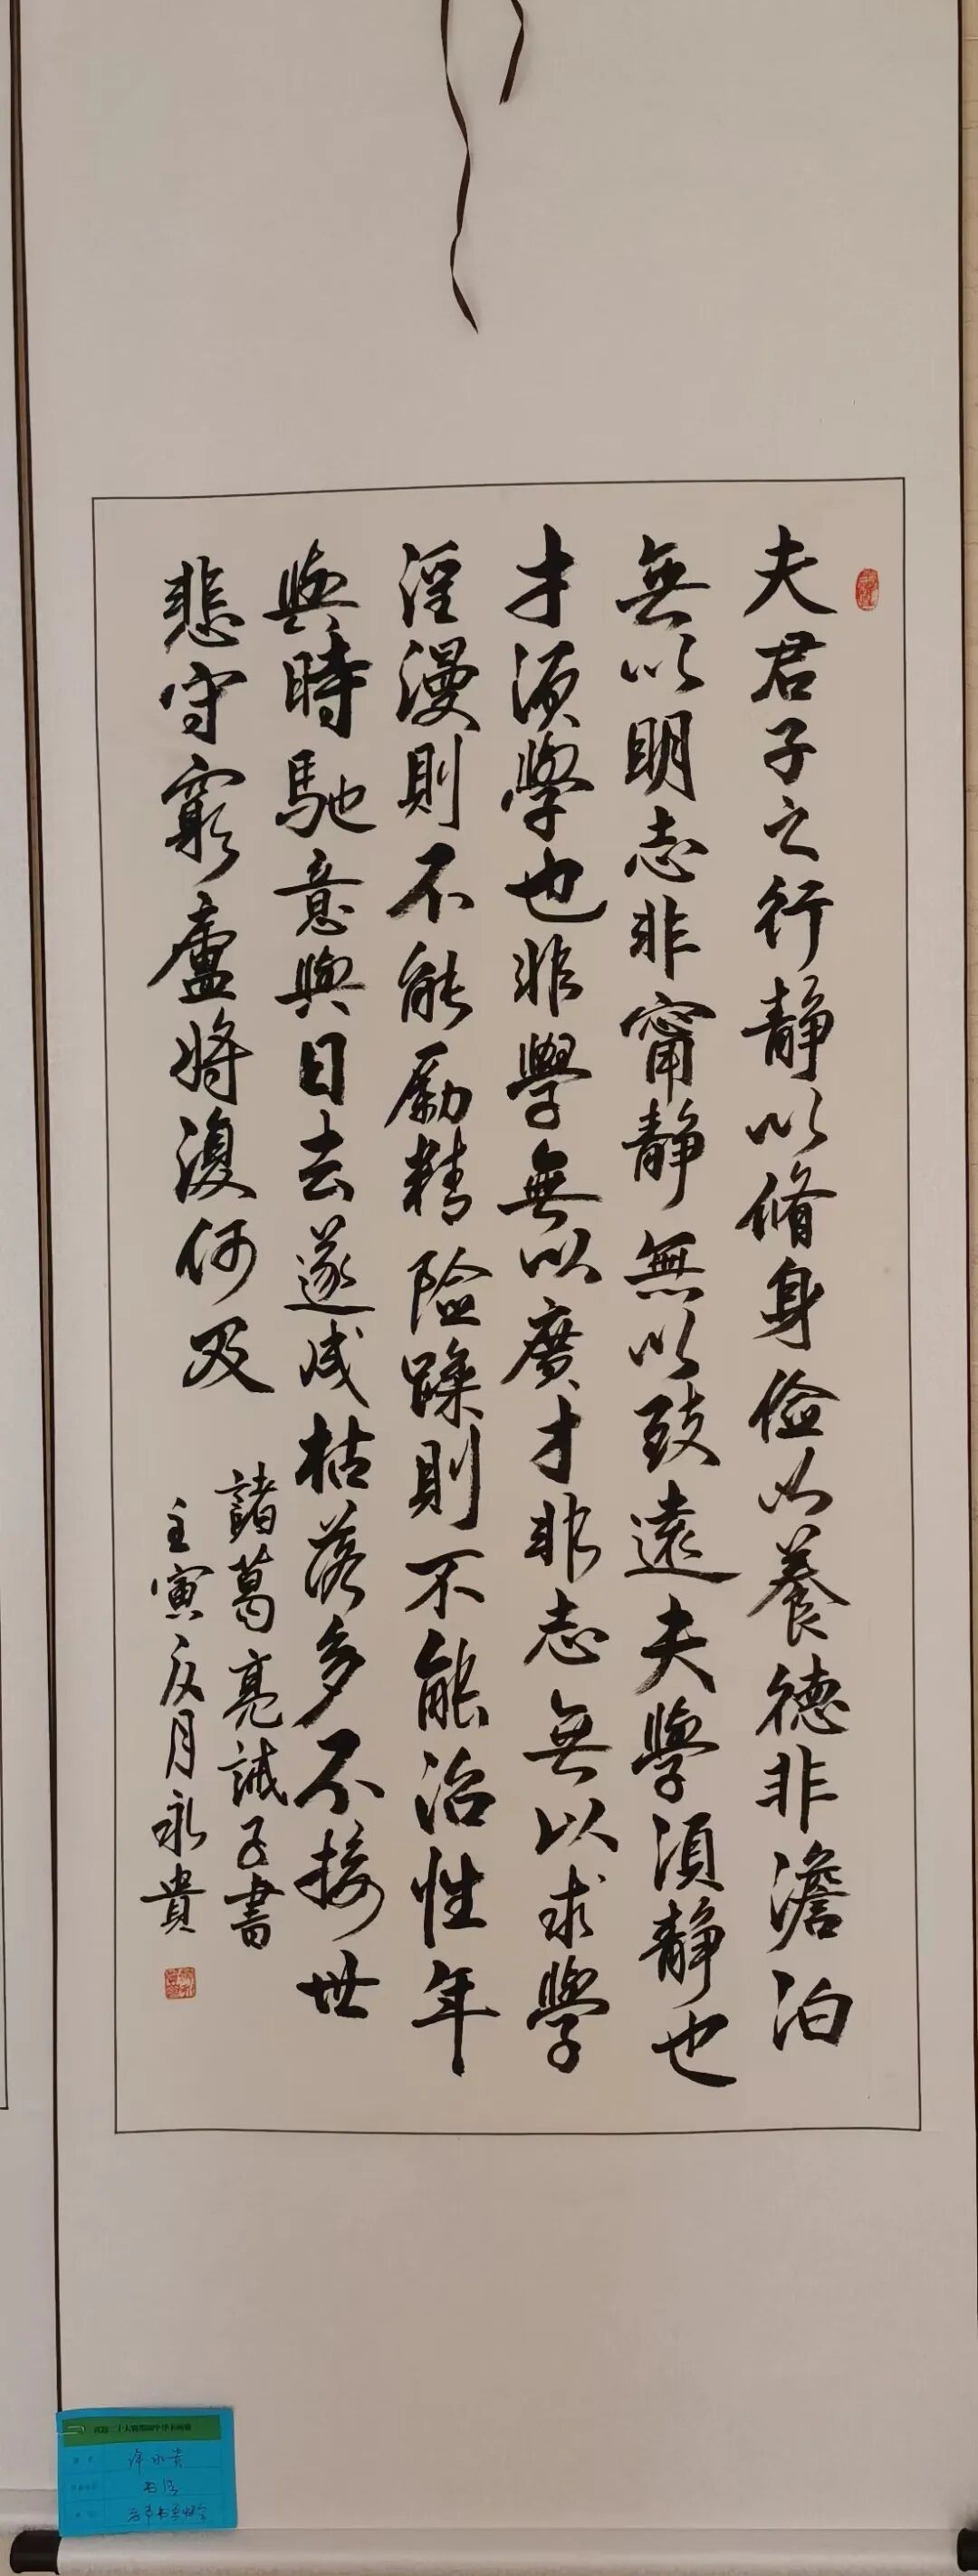 夫君子之行静以脩身儉以養德非澹泊
無以明志非甯静無以致遠夫學須静也
才須學也非學無以廣才非志無以求學
淫漫則不能勵精險躁則不能治性年
與時馳意與日去遂成枯落多不接世
悲守窮廬將復何及
諸葛亮誡子書
壬寅夜月永貴
永貴
书法